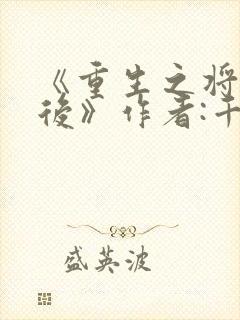 《重生之将
後》作者:千
盛英波